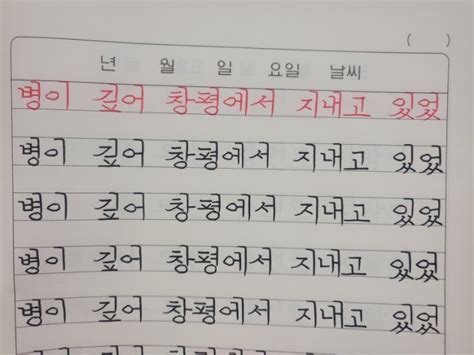 ( )
년 월 일 요일 날씨
병이 깊어 창평에서 지내고 있었
병이 깊어 창평에서 지내고 있었
병이 깊어 창평에서 지내고 있었
병이 깊어 창평에서 지내고 있었
병이 깊어 창평에서 지내고 있었